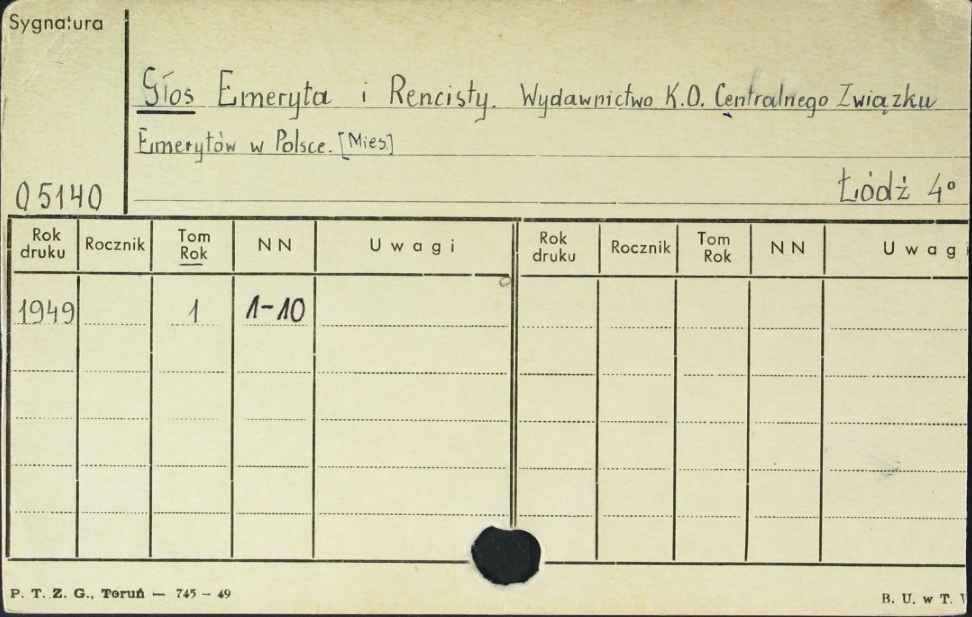 Sygnatura
Głos Emeryta i Rencisty. Wydawnictwo K.O. Centralnego Związku
Emerytów w Polsce. [Mies]
05140
Łódź 4°
Rok druku Rocznik Tom Rok NN Uwagi Rok druku Rocznik Tom Rok NN Uwagi
1949 1 1-10
P. T. Z. G., Toruń — 745 - 49
B. U. w T.